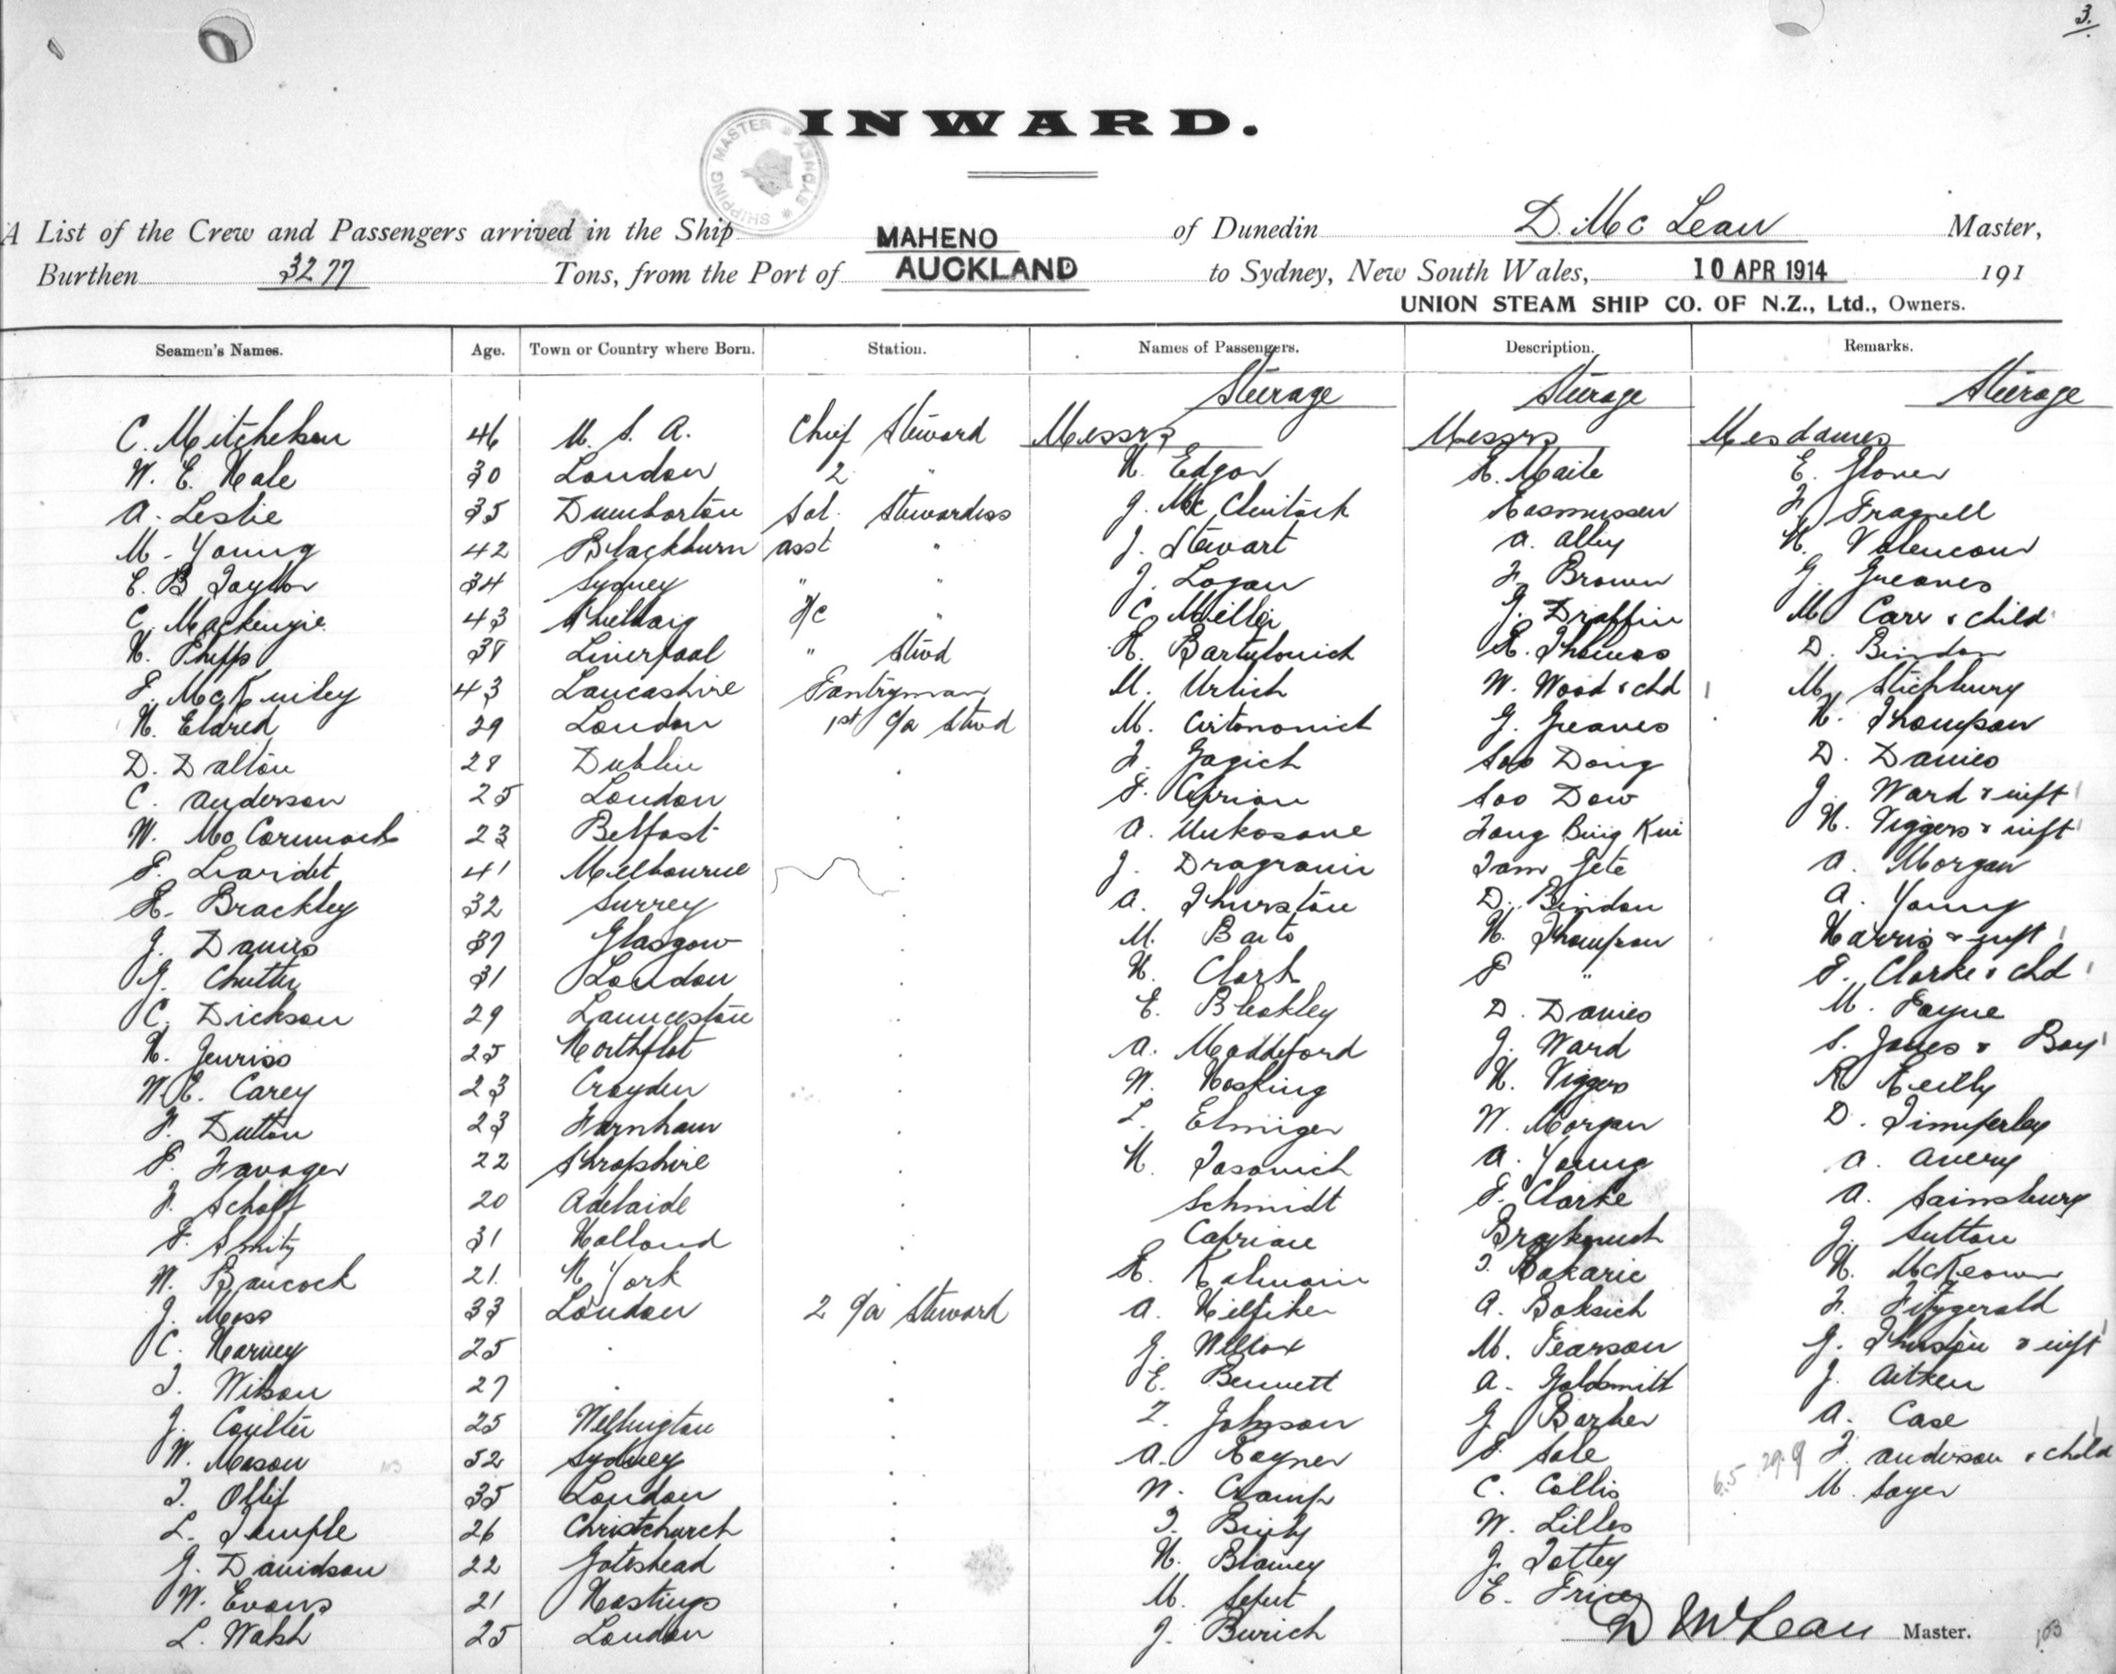 3.
INWARD.
SHIPPING MASTER * SYDNEY *
A List of the Crew and Passengers arrived in the Ship MAHENO of Dunedin D. Mc Lean Master,
Burthen 3277 Tons, from the Port of AUCKLAND to Sydney, New South Wales, 10 APR 1914 191
UNION STEAM SHIP CO. OF N.Z., Ltd., Owners.
Seamen's Names. Age. Town or Country where Born. Station. Names of Passengers. Description. Remarks.
Steerage Steerage Steerage
C. Mitchelson 46 U. S. A. Chief Steward Messrs Messrs Mesdames
W. E. Hale 30 London 2 " H. Edgar R. Maile E. Glover
A. Leslie 35 Dumbarton Sal. Stewardess J. Mc Clintock Rasmussen F. Fragnell
M. Young 42 Blackburn asst " J. Stewart A. Alley H. Valencour
E. B Taylor 34 Sydney " " J. Logan F. Brown G. Greaves
C. Mackenzie 43 F/c " C. Miller J. Draffin M Carr & child
H. Phipps 38 Liverpool " Stwd R. Bartulovich R. Thomas D. Bindon
P. McKinley 43 Lancashire Pantryman M. Urlich W. Wood & chd M. Stichbury
H. Eldred 29 London 1st C/a Stwd M. G. Greaves H. Thompson
D. Dalton 28 Dublin . F. Gagich Soo Dong D. Davies
C. Anderson 25 London . P. Ciprian Soo Dow J. Ward & inft
W. McCormack 23 Belfast . A. Unkosane Fong Bing Kui H. Viggers & inft
P. Liardet 41 Melbourne . J. Tam Gete A. Morgan
R. Brackley 32 Surrey . A. Thurston D. Bindon A. Young
J. Davies 37 Glasgow . M. Barto H. Thompson Harris & inft
G. Chutter 31 London . H. Clark P " P. Clarke & chd
C. Dickson 29 Launceston . E. Bleakley D. Davies M. Payne
H. Jenriss 25 Northflot . A. Maddeford J. Ward S. Jones & Boy
W. E. Carey 23 Croyden . W. Hosking H. Viggers R Reilly
F. Dutton 23 Farnham . L. Elmiger W. Morgan D. Timperley
P. Favager 22 Shropshire . N. Tasovich A. Young A. Avery
F. Scholf 20 Adelaide . Schmidt P. Clarke A. Sainsbury
P. Smitz 31 Holland . Capriane J. Sutton
W. Bancock 21. N York . R. Kalmain T. Bakaric H. McKeown
J. Moss 33 London 2 C/a Steward A. Hilfiker A. Boksich F. Fitzgerald
C. Harvey 25 . . G. Willcox M. Pearson G. Thurston & inft
T. Wilson 27 . . E. Bennett A. Goldsmith J. Aitken
J. Coulter 25 Wellington . Z. Johnson G Barber A. Case
W. Mason 52 Sydney . A. Rayner P. Sole F. Anderson & child
T. Ollif 35 London . W. Cramp C. Collis M. Sayer
L. Temple 26 Christchurch . T. Birily W. Lilles
G. Davidson 22 Gateshead . H. Blamey J. Tottey
W. Evans 21 Hastings . M. Seput E. Price
L. Walsh 25 London . J. Burich D McLean Master. 103